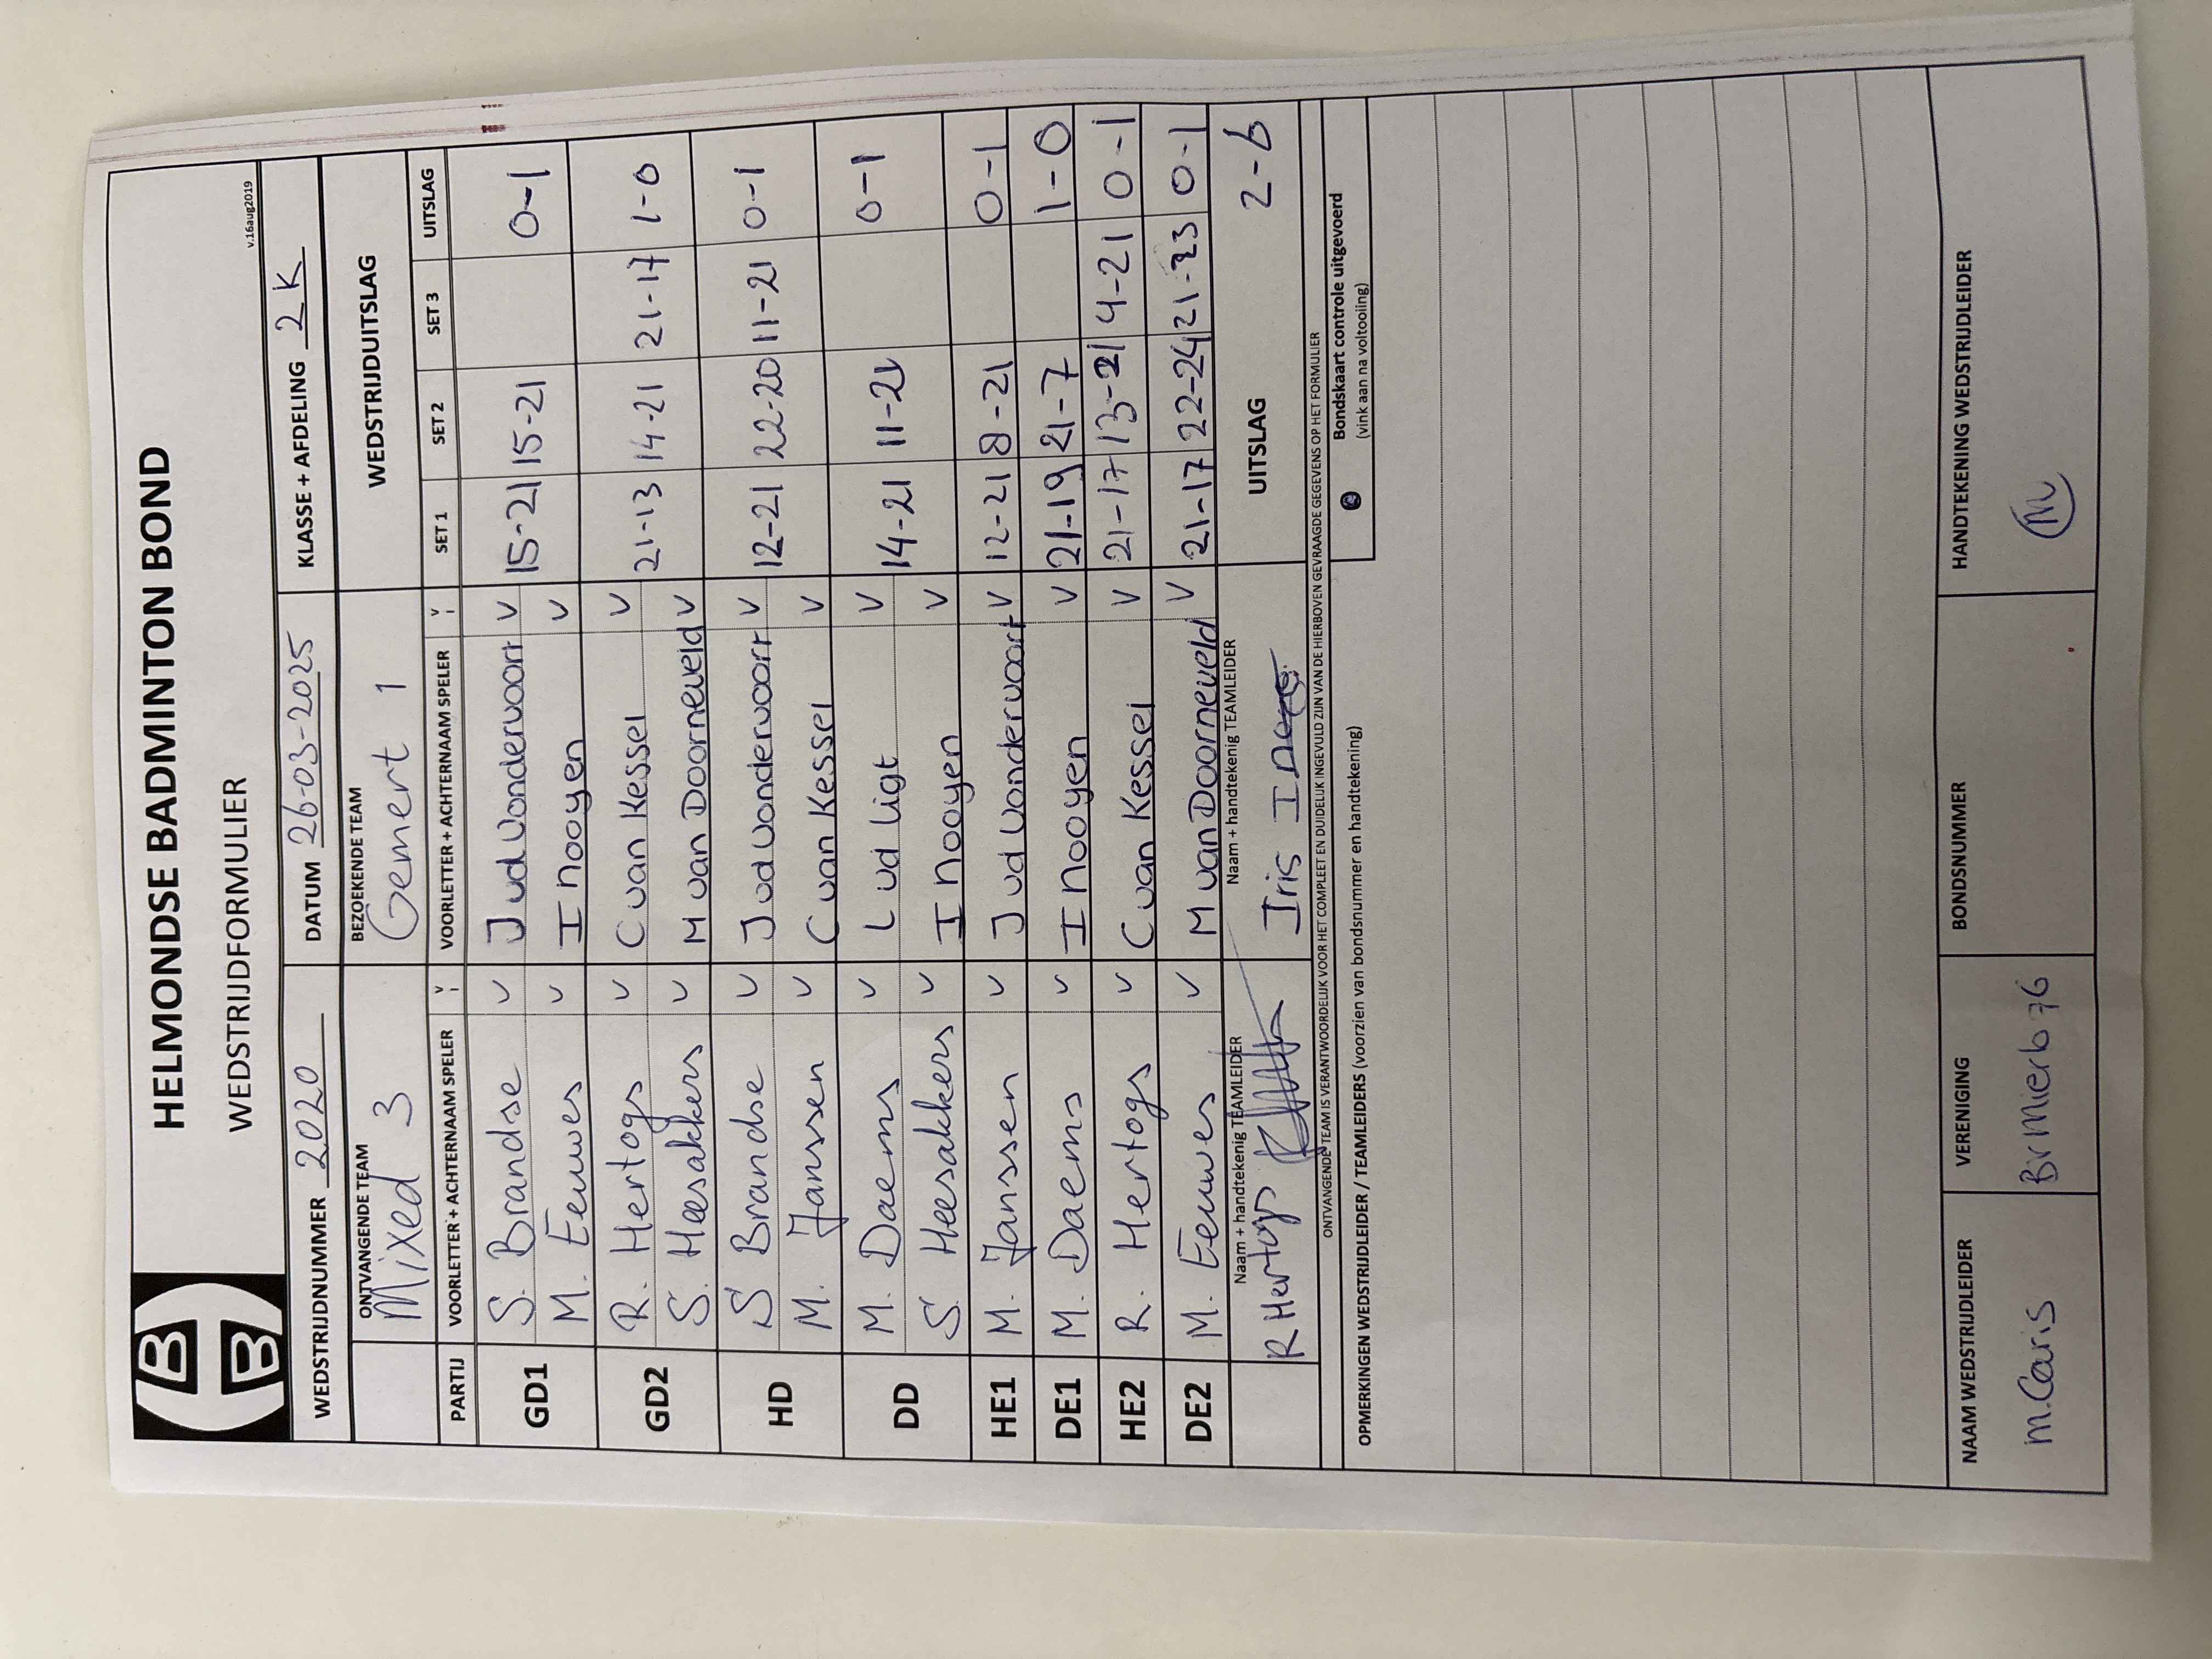 HELMONDSE BADMINTON BOND
WEDSTRIJDFORMULIER
v.16aug2019
WEDSTRIJDNUMMER 2020 DATUM 26-03-2025 KLASSE + AFDELING 2K
ONTVANGENDE TEAM BEZOEKENDE TEAM WEDSTRIJDUITSLAG
Mixed 3 Gemert 1
PARTIJ VOORLETTER + ACHTERNAAM SPELER V VOORLETTER + ACHTERNAAM SPELER V SET 1 SET 2 SET 3 UITSLAG
GD1 S. Brandse V J vd Vondervoort V 15-21 15-21 0-1
M. Eeuwes V I Nooyen V
GD2 R. Hertogs V C van Kessel V 21-13 14-21 21-17 1-0
S. Heesakkers V M van Doorneveld V
HD S Brandse V J vd Vondervoort V 12-21 22-20 11-21 0-1
M. Janssen V C van Kessel V
DD M. Daems V L vd Ligt V 14-21 11-21 0-1
S. Heesakkers V I Nooyen V
HE1 M. Janssen V J vd Vondervoort V 12-21 8-21 0-1
DE1 M. Daems V I Nooyen V 21-19 21-7 1-0
HE2 R. Hertogs V C van Kessel V 21-17 13-21 4-21 0-1
DE2 M. Eeuwes V M van Doorneveld V 21-17 22-24 21-23 0-1
Naam + handtekenig TEAMLEIDER Naam + handtekenig TEAMLEIDER UITSLAG 2-6
R Hertogs Iris
ONTVANGENDE TEAM IS VERANTWOORDELIJK VOOR HET COMPLEET EN DUIDELIJK INGEVULD ZIJN VAN DE HIERBOVEN GEVRAAGDE GEGEVENS OP HET FORMULIER
OPMERKINGEN WEDSTRIJDLEIDER / TEAMLEIDERS (voorzien van bondsnummer en handtekening)
Bondskaart controle uitgevoerd
(vink aan na voltooiing)
NAAM WEDSTRIJDLEIDER VERENIGING BONDSNUMMER HANDTEKENING WEDSTRIJDLEIDER
M. Caris BV Mierlo 76